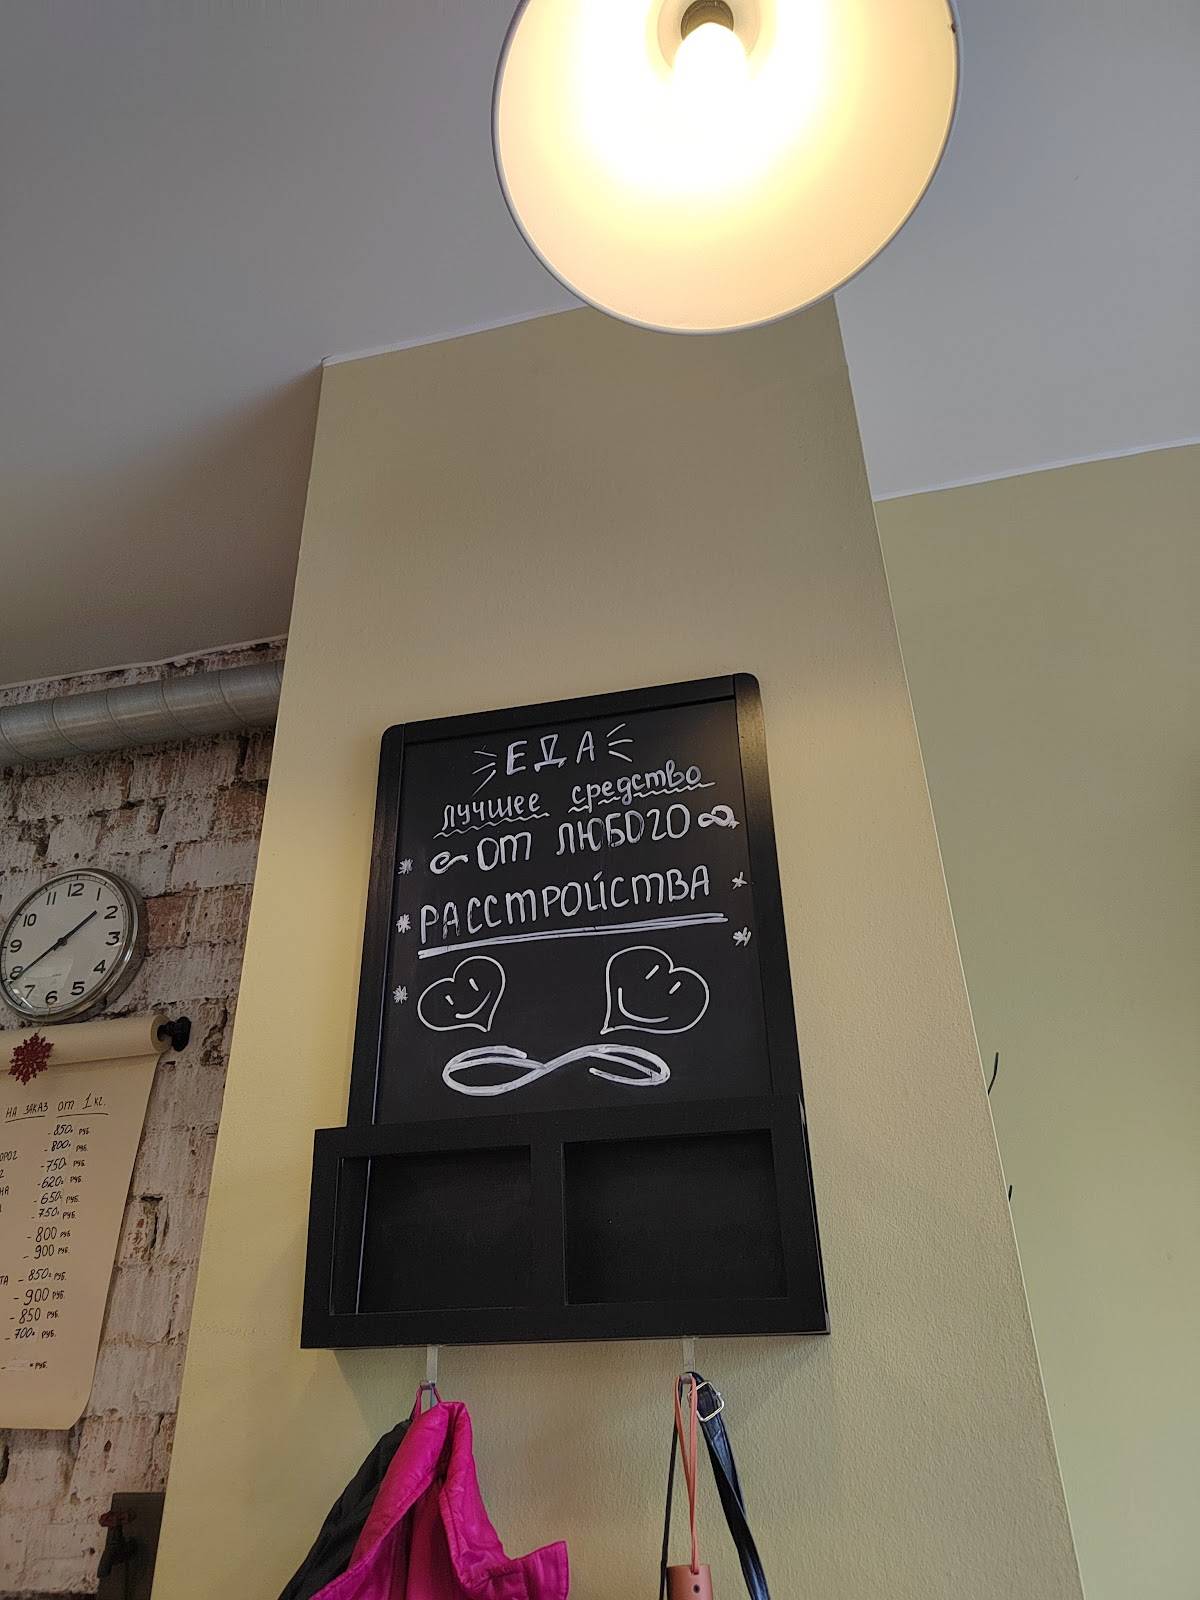 ЕДА
лучшее средство
от любого
РАССТРОЙСТВА
12
1
2
3
4
5
6
7
8
9
10
11
НА ЗАКАЗ от 1 кг.
- 850 РУБ.
- 800 РУБ.
- 750 РУБ.
- 620 РУБ.
- 650 РУБ.
- 750 РУБ.
- 800 РУБ.
- 900 РУБ.
- 850 РУБ.
- 900 РУБ.
- 850 РУБ.
- 700 РУБ.
РУБ.